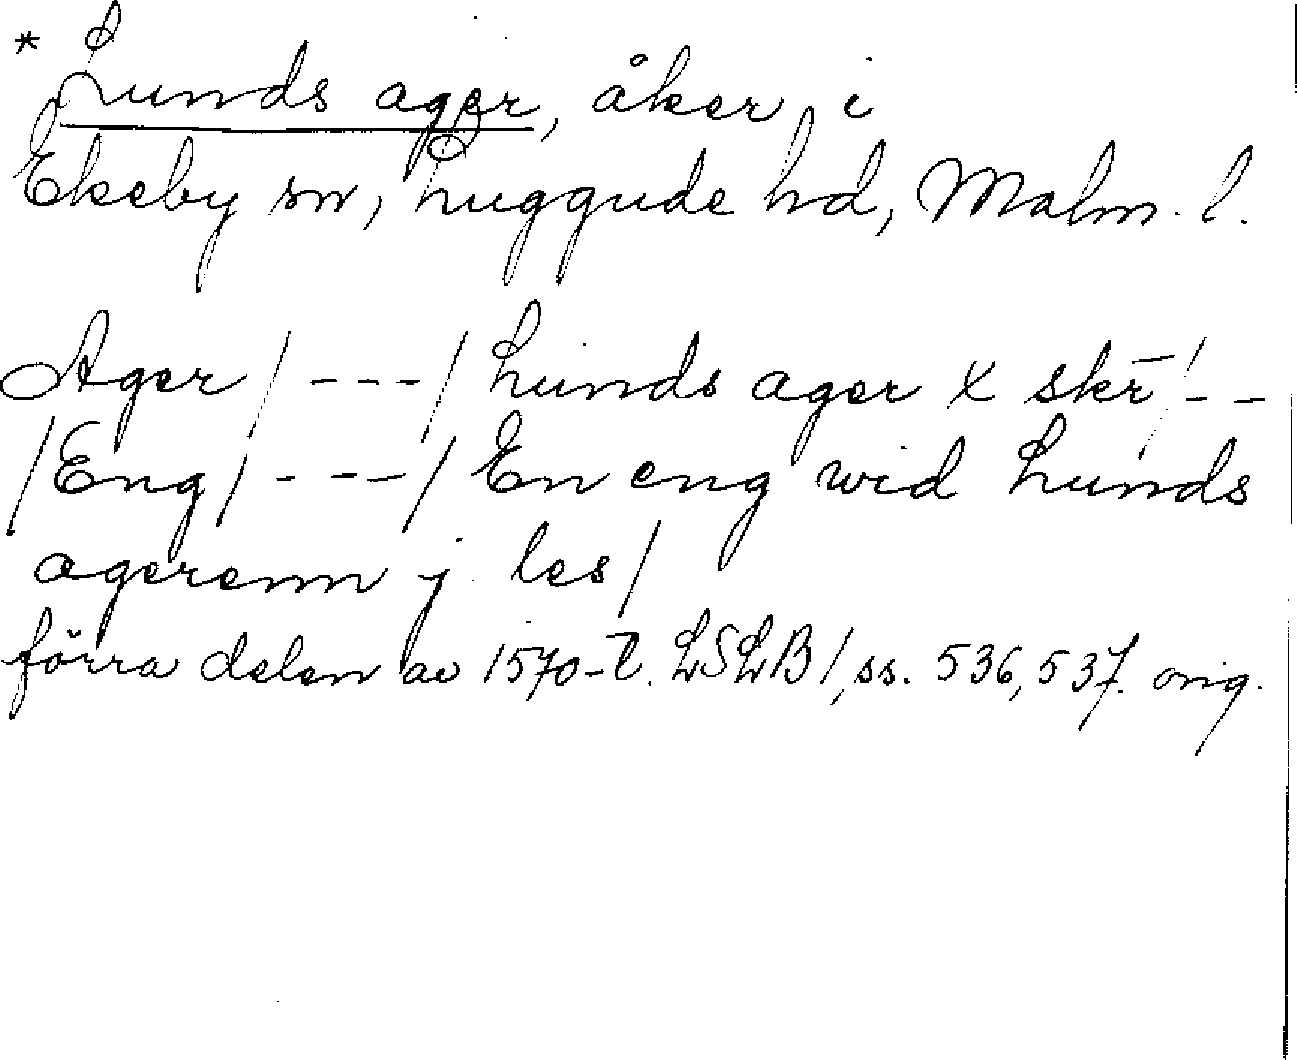 * Lunds ager, åker, i
Ekeby sn, Luggude hd, Malm. l.
Ager / - - - / Lunds ager x skr̄ / - -
/ Eng / - - - / En eng wid Lunds
agerenn j les /
förra delen av 1570-t. LSLB 1, ss. 536, 537. orig.